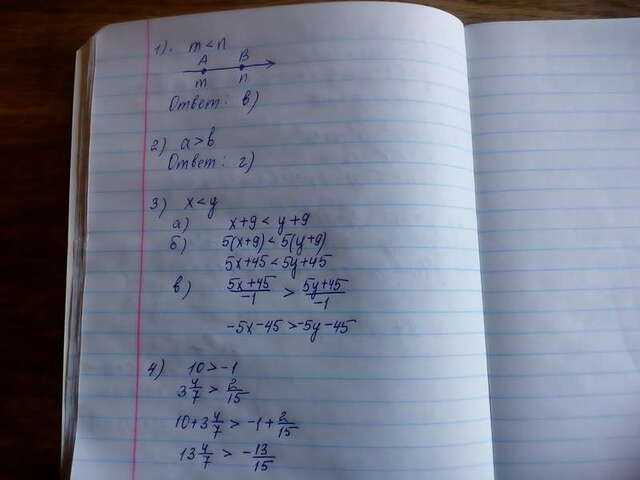 1). m < n
A B
m n
Ответ: в)
2) a > b
Ответ: г)
3) x < y
а) x+9 < y+9
б) 5(x+9) < 5(y+9)
5x+45 < 5y+45
в) (5x+45)/-1 > (5y+45)/-1
-5x-45 > -5y-45
4) 10 > -1
3 4/7 > 2/15
10+3 4/7 > -1+2/15
13 4/7 > -13/15